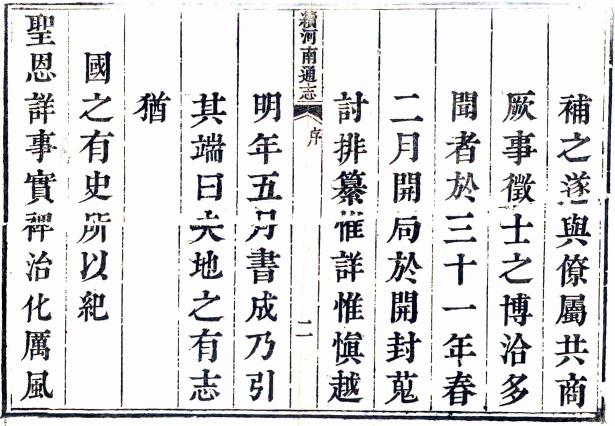 補之遂與僚屬共商
厥事徵士之博洽多
聞者於三十一年春
二月開局於開封蒐
討排纂惟詳惟愼越
續河南通志
序
二
明年五月書成乃引
其端曰夫地之有志
猶
國之有史所以紀
聖恩詳事實裨治化厲風